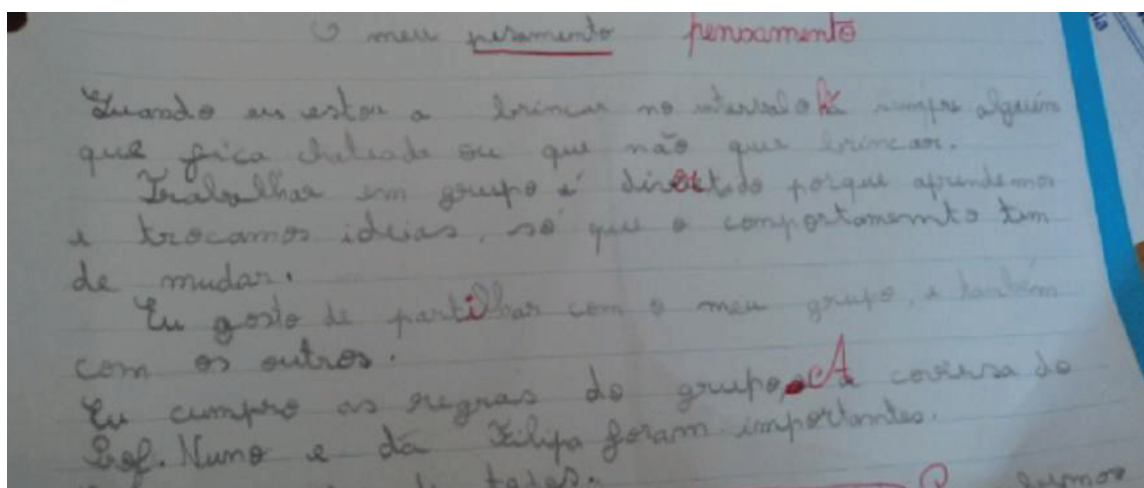 O meu pesamento pensamento
Quando eu estou a brincar no intervalo há sempre alguém
que fica chateado ou que não quer brincar.
Trabalhar em grupo é divertido porque aprendemos
e trocamos ideias, só que o comportamento tem
de mudar.
Eu gosto de partilhar com o meu grupo, e também
com os outros.
Eu cumpro as regras do grupo. A coversa do
Prof. Nuno e da Filipa foram importantes.